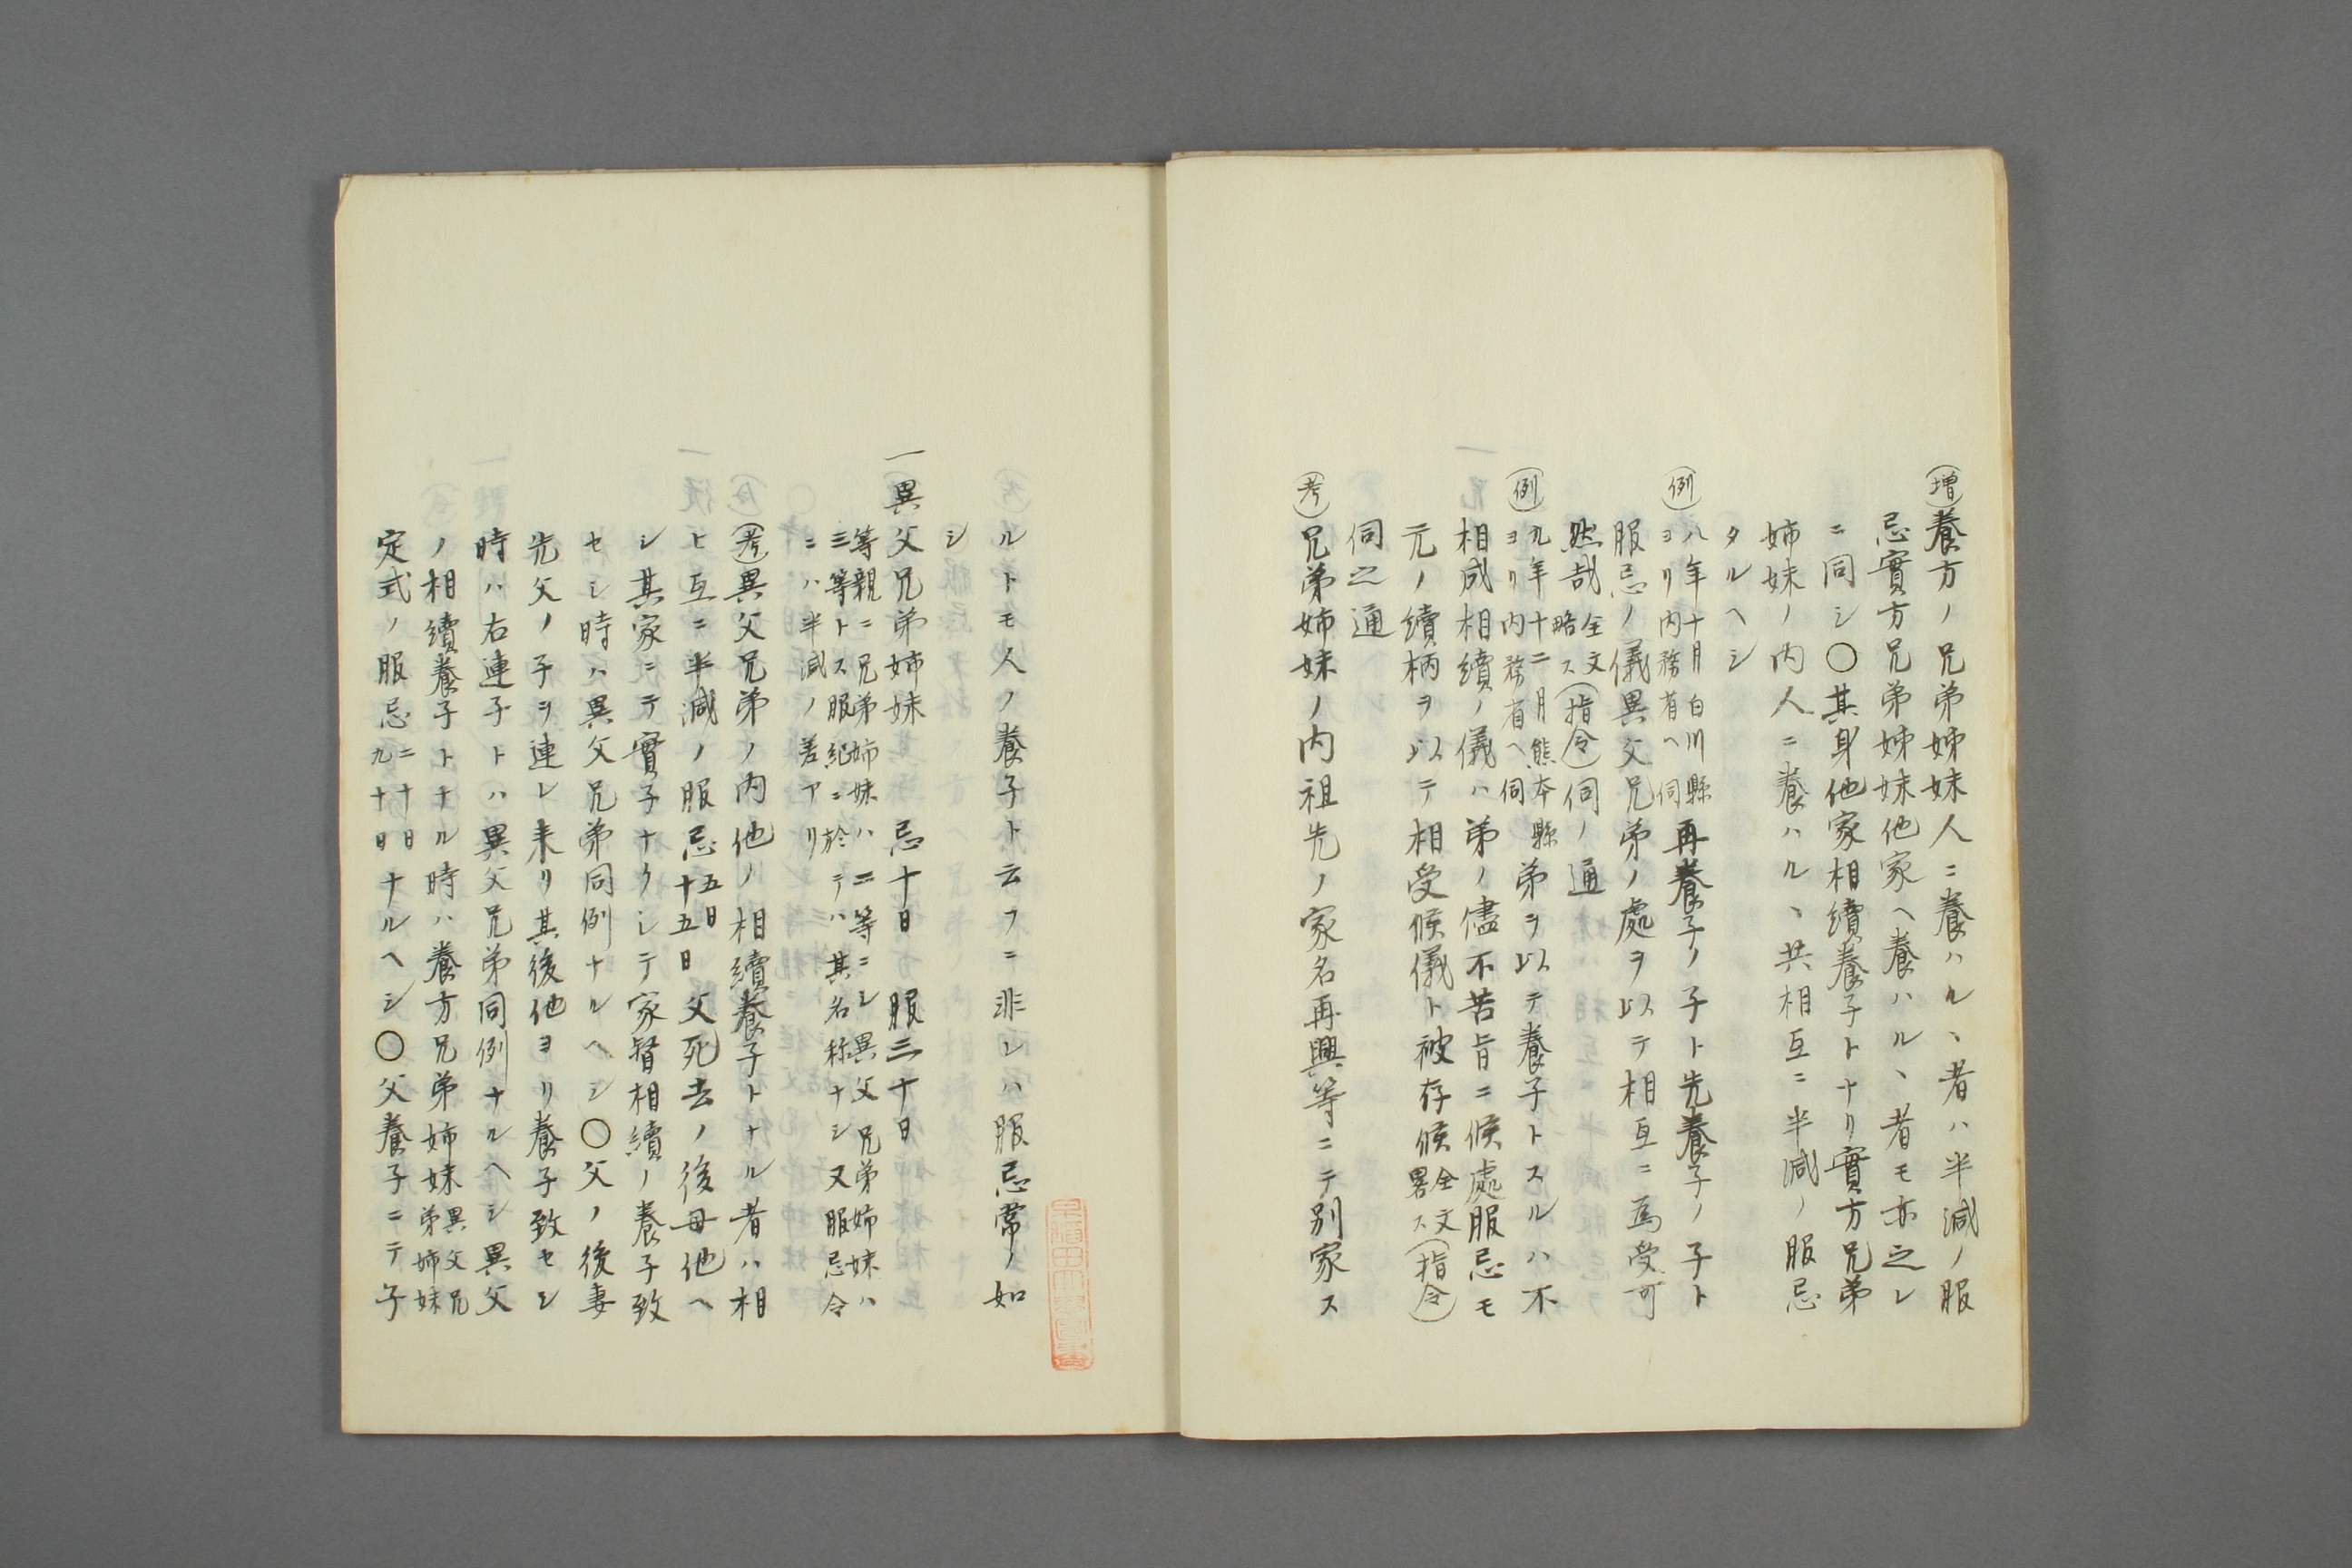 (増)養方ノ兄弟姊妹人ニ養ハル、者ハ半減ノ服
忌實方兄弟姊妹他家ヘ養ハル、者モ亦之レ
ニ同シ〇其身他家相續養子トナリ實方兄弟
姉妹ノ内人ニ養ハル、共相互ニ半減ノ服忌
タルヘシ
(例)八年十月白川縣ヨリ内務省ヘ伺再養子ノ子ト先養子ノ子ト
服忌ノ儀異父兄弟ノ處ヲ以テ相互ニ為受可
然哉全文略ス(指令)伺ノ通
(例)九年十二月熊本縣ヨリ内務省ヘ伺弟ヲ以テ養子トスルハ不
相成相續ノ儀ハ弟ノ儘不苦旨ニ候處服忌モ
元ノ續柄ヲ以テ相受候儀ト被存候全文畧ス(指令)
伺之通
(考)兄弟姉妹ノ内祖先ノ家名再興等ニテ別家ス
ルトモ人ノ養子ト云フニ非レハ服忌常ノ如
シ
一異父兄弟姉妹 忌十日 服三十日
等親ニ兄弟姉妹ハ二等ニシ異父兄弟姉妹ハ
三等トス服紀ニ於テハ其名称ナシ又服忌令
ニハ半減ノ差アリ
(考)異父兄弟ノ内他ノ相續養子トナル者ハ相
ヒ互ニ半減ノ服忌五日十五日父死去ノ後母他ヘ
シ其家ニテ實子ナクシテ家督相續ノ養子致
セシ時ハ異父兄弟同例ナルヘシ〇父ノ後妻
先父ノ子ヲ連レ来リ其後他ヨリ養子致セシ
時ハ右連子トハ異父兄弟同例ナルヘシ異父
ノ相續養子トナル時ハ養方兄弟姉妹異父兄弟姉妹
定式ノ服忌二十日九十日ナルヘシ〇父養子ニテ子